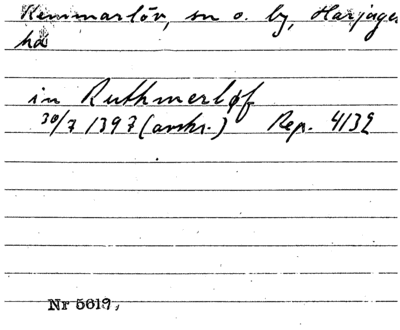 Remmarlöv, sn o. by, Harjager
hd
in Ruthmerløf
30/7 1397 (avskr.) Rep. 4132
Nr 5619,